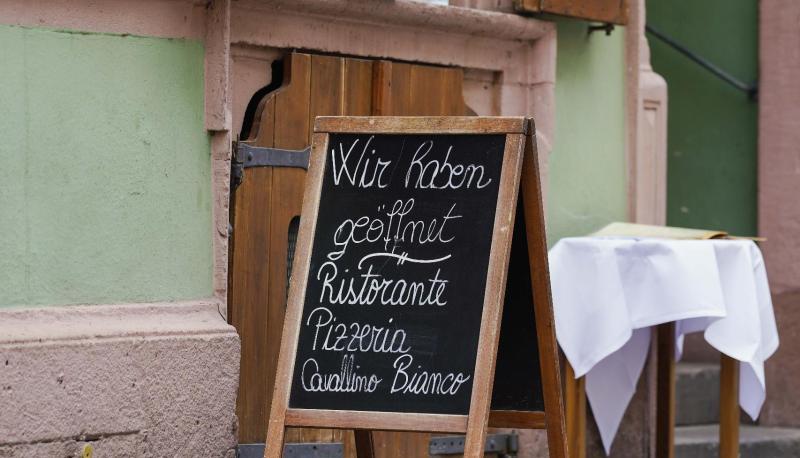 Wir haben
geöffnet
Ristorante
Pizzeria
Cavallino Bianco